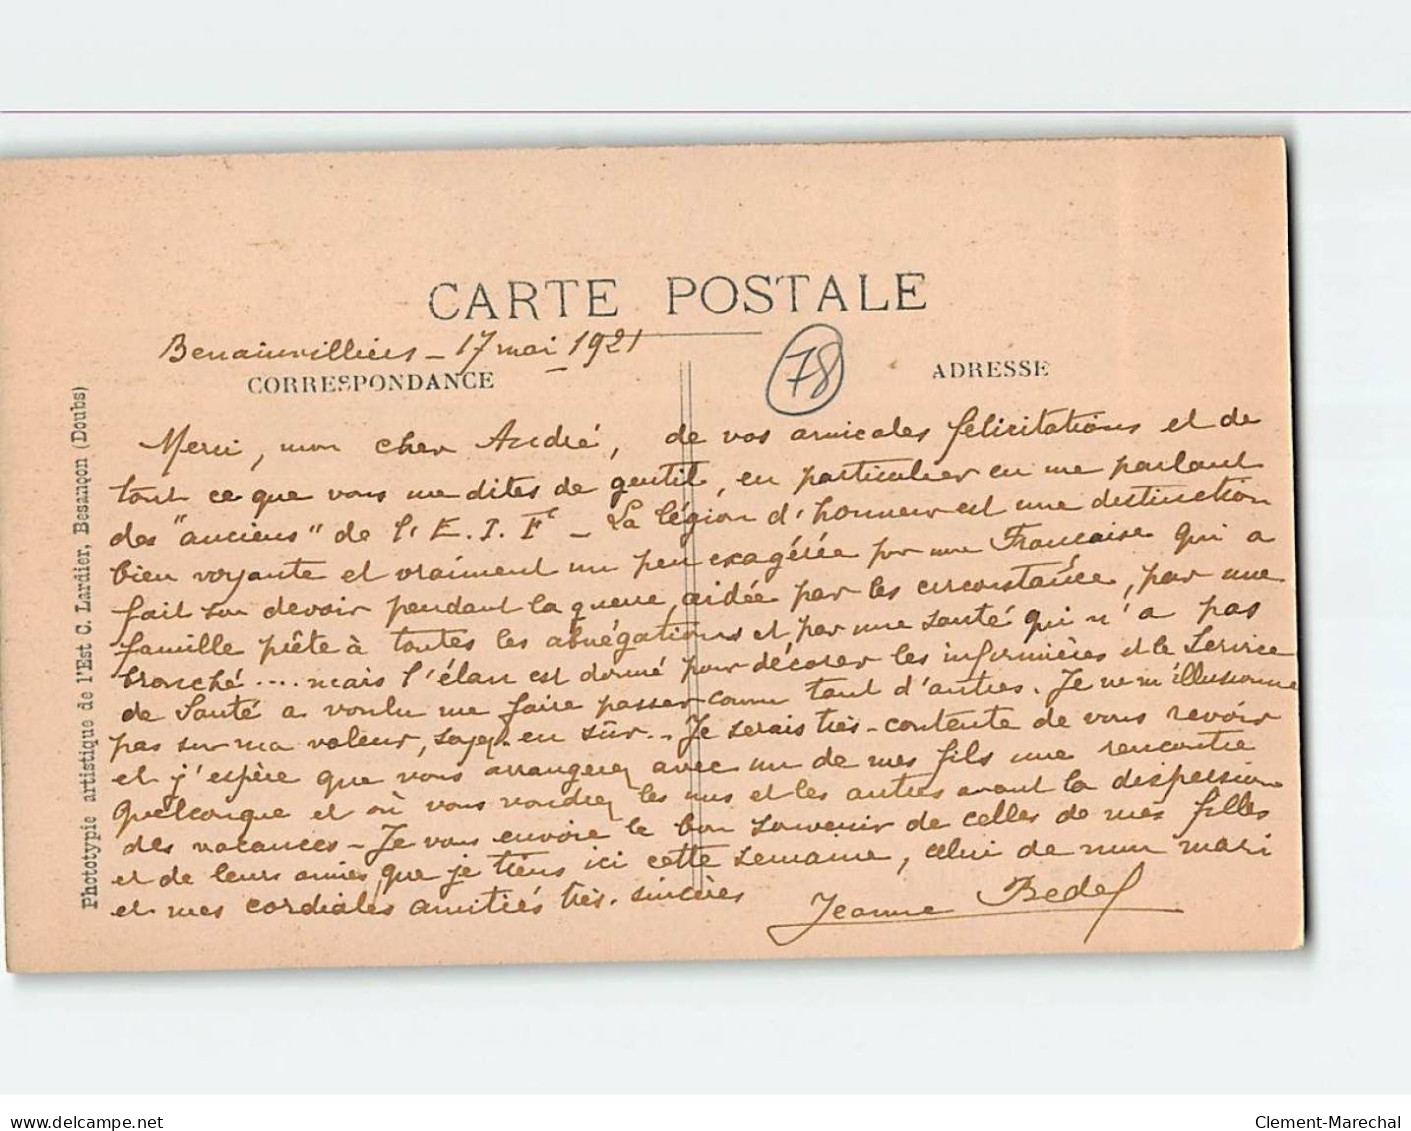 CARTE POSTALE
Benainvilliers - 17 mai 1921
CORRESPONDANCE
78
ADRESSE
Merci, mon cher André, de vos amicales félicitations et de
tout ce que vous me dites de gentil, en particulier en me parlant
des "anciens" de l'E.I.Fc - La légion d'honneur est une distinction
bien voyante et vraiment un peu exagérée pour une Française qui a
fait son devoir pendant la guerre, aidée par les circonstances, par une
famille prête à toutes les abnégations et par une santé qui n'a pas
bronché .... mais l'élan est donné pour décorer les infirmières et le Service
de Santé a voulu me faire passer comme tant d'autres. Je ne m'illusionne
pas sur ma valeur, soyez-en sûr.. Je serais très-contente de vous revoir
et j'espère que vous arrangerez avec un de mes fils une rencontre
quelconque et où vous voudrez les uns et les autres avant la dispersion
des vacances - Je vous envoie le bon souvenir de celles de mes filles
et de leurs amies que je tiens ici cette semaine, celui de mon mari
et mes cordiales amitiés très-sincères
Jeanne Bedel
Phototypie artistique de l'Est C. Lardier, Besançon (Doubs)
www.delcampe.net
Clement-Marechal